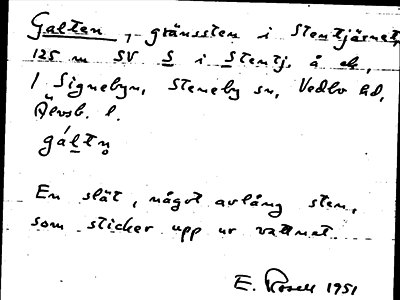 Galten, gränssten i Stentjärnet,
125 m SV S i Stentj. å ek.,
/ Signebyn, Steneby sn, Vedbo hd,
Älvsb. l.
gáltn̥
En slät, något avlång sten,
som sticker upp ur vattnet.
E. Rosell 1951